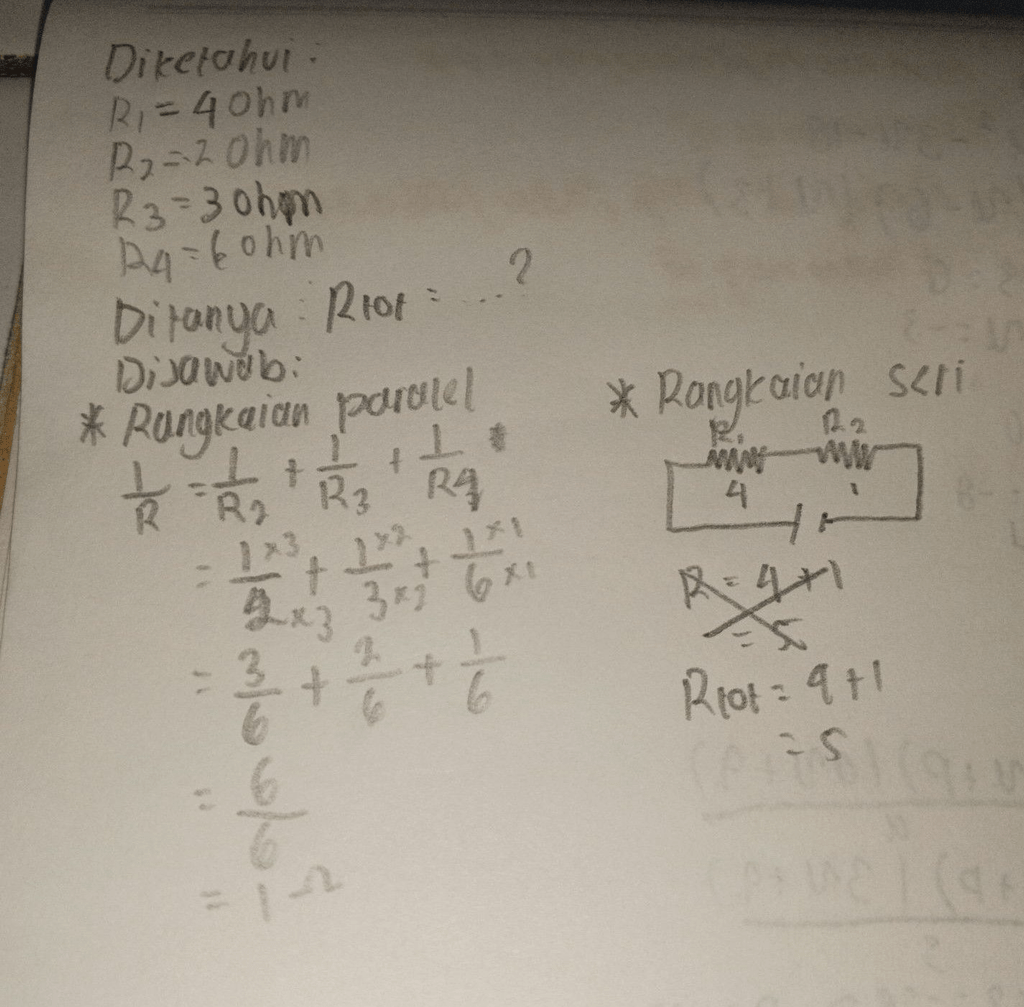 Diketahui :
R1 = 4 Ohm
R2 = 2 Ohm
R3 = 3 ohm
R4 = 6 ohm
Ditanya : Rtot = ...?
Dijawab:
* Rangkaian paralel
1/R = 1/R2 + 1/R3 + 1/R4
= 1×3/2×3 + 1×2/3×2 + 1×1/6×1
= 3/6 + 2/6 + 1/6
= 6/6
= 1 Ω
* Rangkaian seri
R1 R2
4 1
R = 4 + 1
= 5
Rtot = 4 + 1
= 5